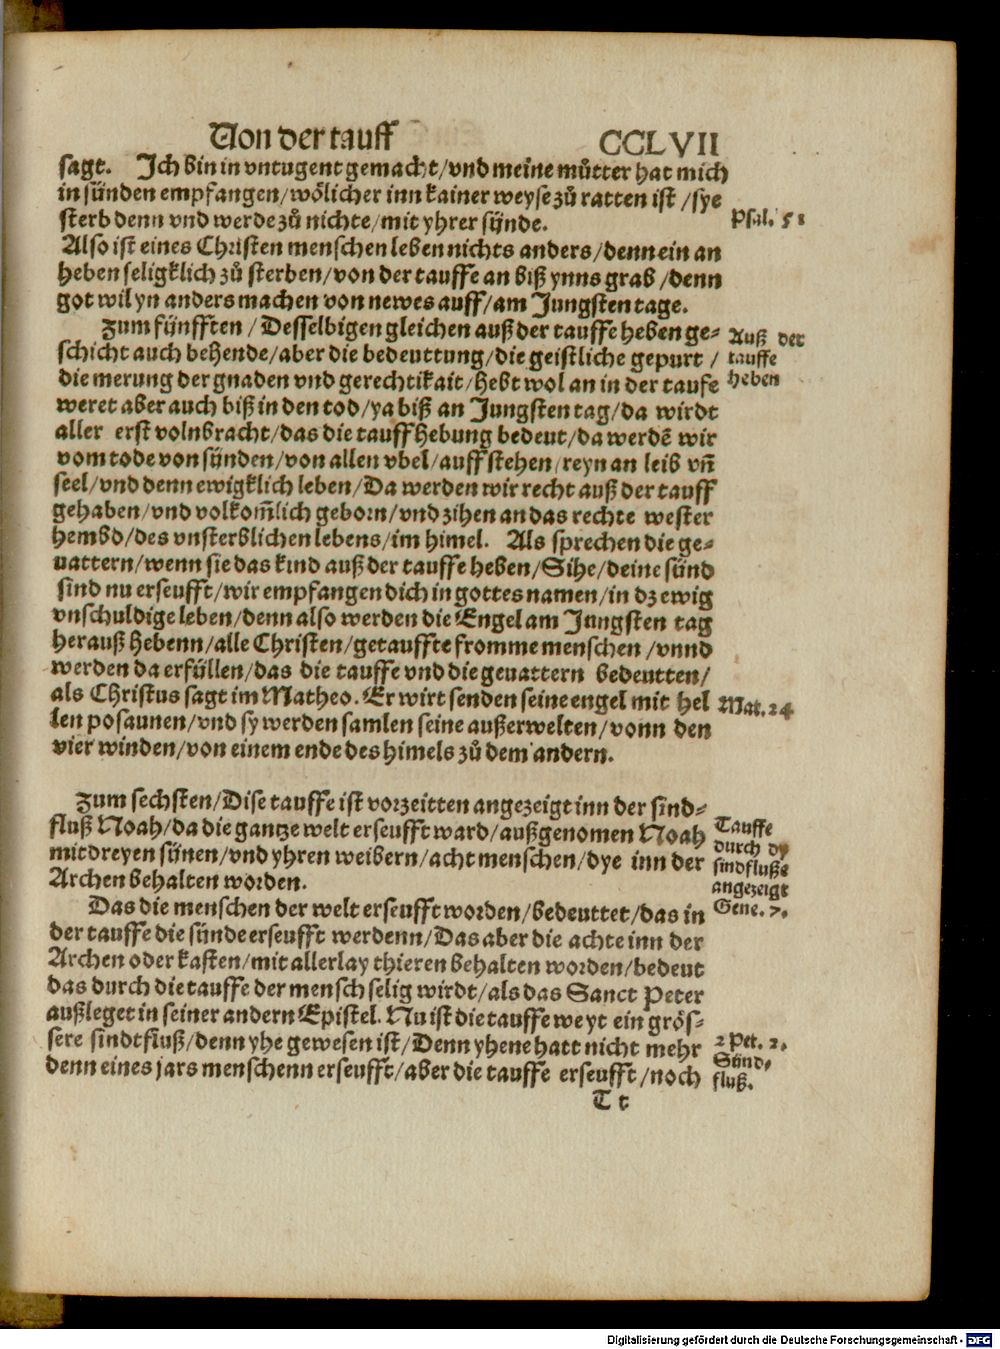 Von der tauff CCLVII
sagt. Ich bin in vntugent gemacht/vnd meine můtter hat mich
in sünden empfangen/wölicher inn kainer weyse zů ratten ist/sye
sterb denn vnd werde zů nichte/mit yhrer sÿnde.
Psal. 51
Also ist eines Christen menschen leben nichts anders/denn ein an
heben seligklich zů sterben/von der tauffe an biß ynns grab/denn
got wil yn anders machen von newes auff/am Jungsten tage.
Zum fÿnfften/Desselbigen gleichen auß der tauffe heben ge-
schicht auch behende/aber die bedeuttung/die geistliche gepurt/
die merung der gnaden vnd gerechtikait/hebt wol an in der taufe
Auß der
tauffe
heben
weret aber auch biß in den tod/ya biß an Jungsten tag/da wirdt
aller erst volnbracht/das die tauff hebung bedeut/da werdē wir
vom tode von sÿnden/von allen vbel/auff stehen/reyn an leib vn̄
seel/vnd denn ewigklich leben/Da werden wir recht auß der tauff
gehaben/vnd volkom̄lich geborn/vnd zihen an das rechte wester
hembd/des vnsterblichen lebens/im himel. Als sprechen die ge-
uattern/wenn sie das kind auß der tauffe heben/Sihe/deine sünd
sind nu erseufft/wir empfangen dich in gottes namen/in dz ewig
vnschuldige leben/denn also werden die Engel am Jungsten tag
herauß hebenn/alle Christen/getauffte fromme menschen/vnnd
werden da erfüllen/das die tauffe vnd die geuattern bedeutten/
als Christus sagt im Matheo. Er wirt senden seine engel mit hel
len posaunen/vnd sy werden samlen seine außerwelten/vonn den
vier winden/von einem ende des himels zů dem andern.
Mat. 24
Zum sechsten/Dise tauffe ist vorzeitten angezeigt inn der sind-
fluß Noah/da die gantze welt erseufft ward/außgenomen Noah
mit dreyen sÿnen/vnd yhren weibern/acht menschen/dye inn der
Archen behalten worden.
Tauffe
durch dy
sindfluße
angezeigt
Gene. 7.
Das die menschen der welt erseufft worden/bedeuttet/das in
der tauffe die sünde erseufft werdenn/Das aber die achte inn der
Archen oder kasten/mit allerlay thieren behalten worden/bedeut
das durch die tauffe der mensch selig wirdt/als das Sanct Peter
außleget in seiner andern Epistel. Nu ist die tauffe weyt ein grös-
sere sindtfluß/denn yhe gewesen ist/Denn yhene hatt nicht mehr
denn eines jars menschenn erseufft/aber die tauffe erseufft/noch
2 Pet. 2.
Sünd-
fluß.
T t
Digitalisierung gefördert durch die Deutsche Forschungsgemeinschaft - DFG